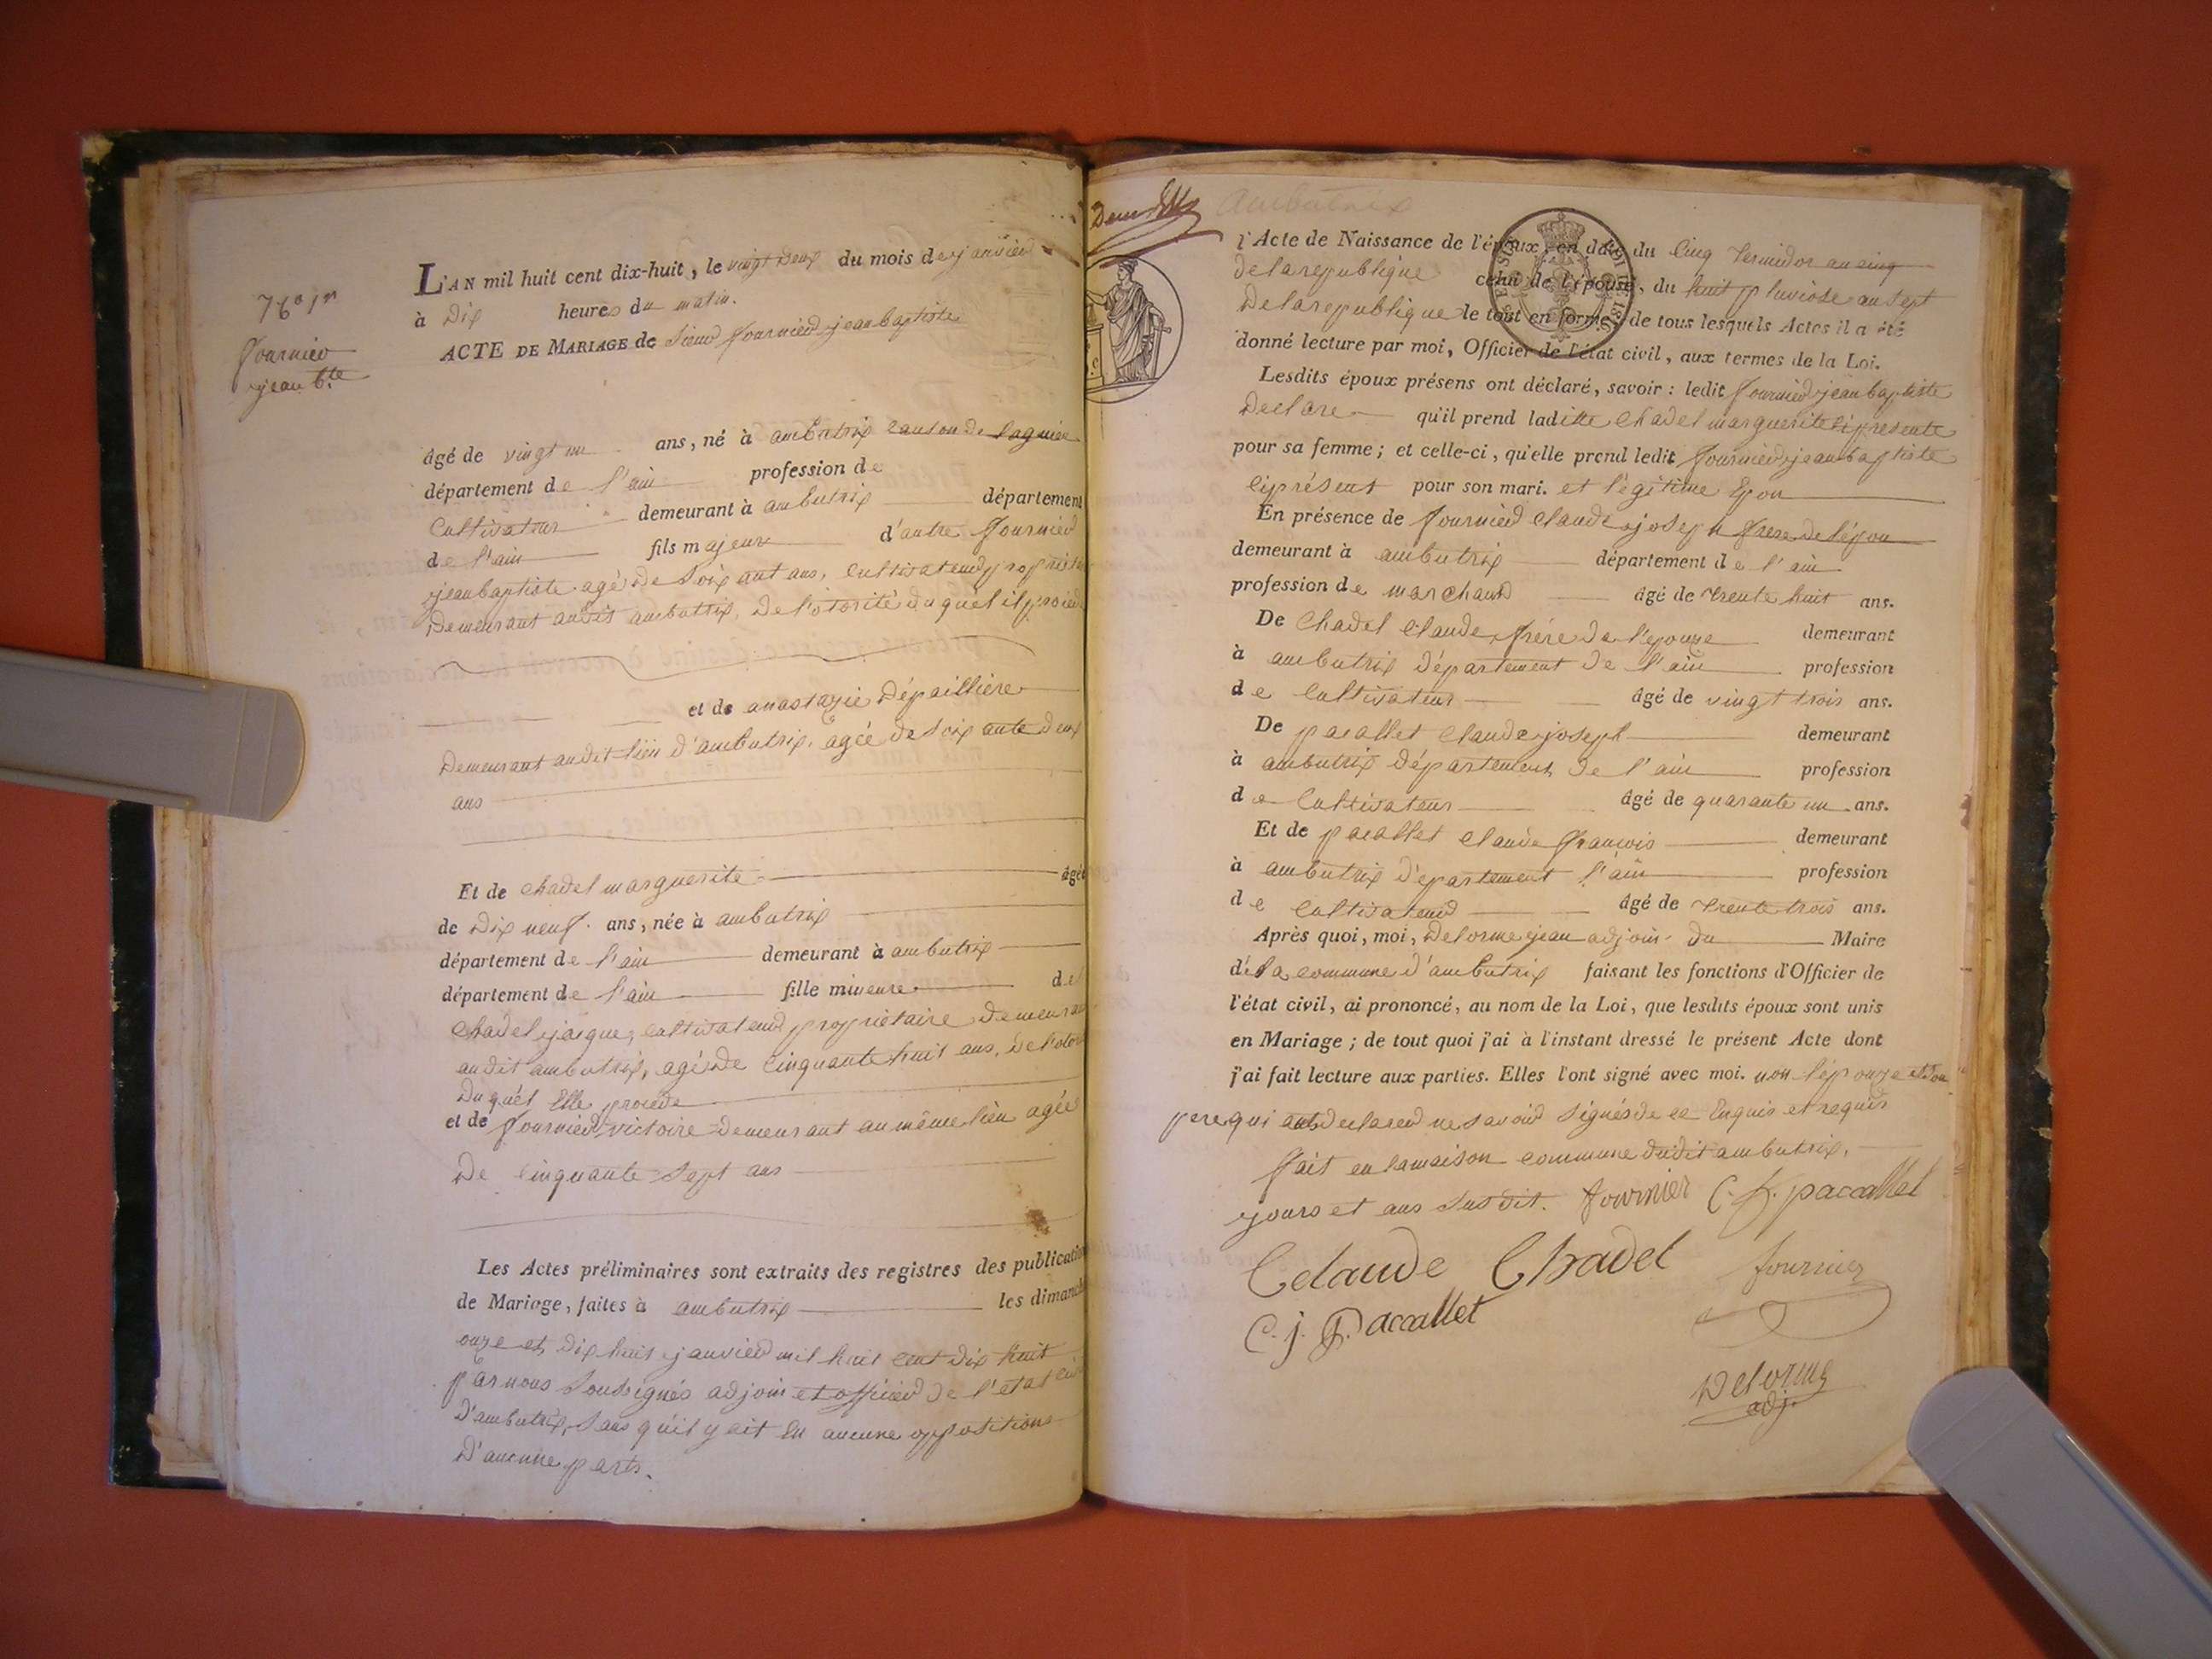 Fournier
jean b.te
L'AN mil huit cent dix-huit, le vingt deux du mois de janvier
à dix heures du matin.
ACTE DE MARIAGE de Sieur fournier jean baptiste
âgé de vingt un ans, né à ambutrix canton de lagnieu
département de l'ain profession de
Cultivateur demeurant à ambutrix département
de l'ain fils majeur d'autre fournier
jean baptiste agé de soixant ans, cultivateur
Demeurant audit ambutrix, de l'otorité duquel il
et de anastazie Dépaillière
Demeurant audit lieu d'ambutrix, agée de soixante deux
ans
Et de chadel marguerite âgée
de Dix neuf ans, née à ambutrix
département de l'ain demeurant à ambutrix
département de l'ain fille mineure de
Chadel jacque, cultivateur propriétaire
audit ambutrix, agé de Cinquante huit ans,
Du quél Elle procede
et de fournier victoire Demeurant au même lieu agée
De Cinquante Sept ans
Les Actes préliminaires sont extraits des registres des publication
de Mariage, faites à ambutrix les dimanch
onze et Dix huit janvier mil huit cent dix huit
par nous Soussignés adjoin et officier de l'état
D'ambutrix, Sans qu'il y ait Eu aucune oppositions
D'aucune parts.
ambutrix
l'Acte de Naissance de l'époux, en date du Cinq termidor an cinq
De la republique celui de l'épouse, du huit pluviose an sept
De la republique le tout en forme; de tous lesquels Actes il a été
donné lecture par moi, Officier de l'état civil, aux termes de la Loi.
Lesdits époux présens ont déclaré, savoir : ledit fournier jean baptiste
Declare qu'il prend laditte Chadel marguerite ci presente
pour sa femme ; et celle-ci, qu'elle prend ledit fournier jean baptiste
ciprésent pour son mari. et légitime Epou
En présence de fournier Claude joseph frere de lépou
demeurant à ambutrix département de l'ain
profession de marchand âgé de trente huit ans.
De Chadel Claude, frére de l'epouze demeurant
à ambutrix département de l'ain profession
de Cultivateur âgé de vingt trois ans.
De pacallet Claude joseph demeurant
à ambutrix département de l'ain profession
de Cultivateur âgé de quarante un ans.
Et de pacallet claude françois demeurant
à ambutrix département l'ain profession
de Cultivateur âgé de trente trois ans.
Après quoi, moi, Delorme jean adjoin du Maire
dé la commune d'ambutrix faisant les fonctions d'Officier de
l'état civil, ai prononcé, au nom de la Loi, que lesdits époux sont unis
en Mariage ; de tout quoi j'ai à l'instant dressé le présent Acte dont
j'ai fait lecture aux parties. Elles l'ont signé avec moi. non l'épouze et son
pere qui ont declarer ne savoir Signés de ce Enquis et requis
fait en la maison commune dudit ambutrix,
jours et ans Susdit. fournier C. f. paccallet
Celaude Chadel fournier
C. j. Paccallet
Delorme
adj.